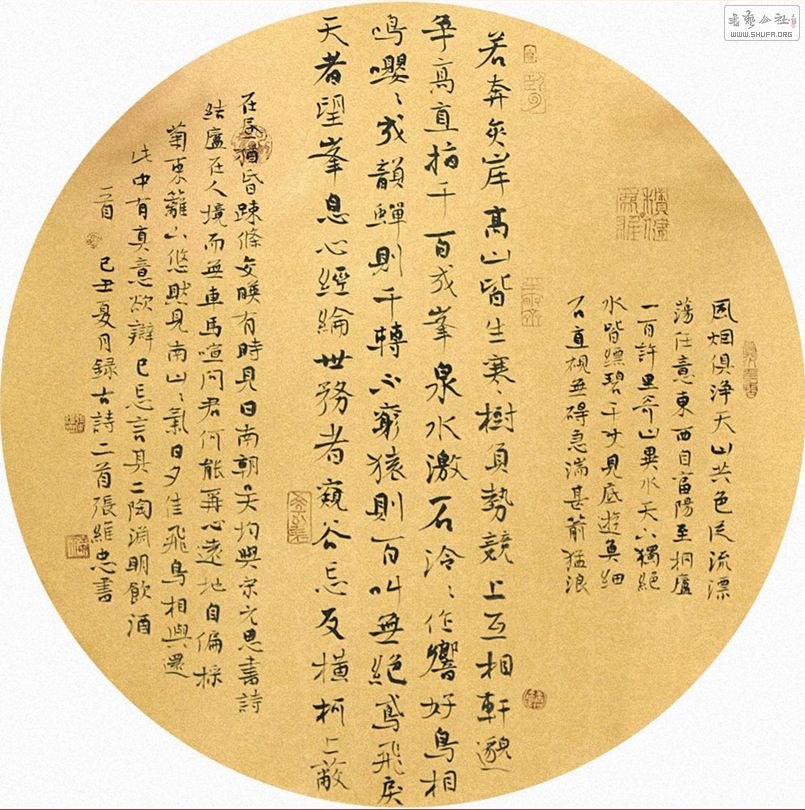 風烟俱淨天山共色從流漂
蕩任意東西自富陽至桐廬
一百許里奇山異水天下獨絕
水皆縹碧千丈見底遊魚細
石直視無碍急湍甚箭猛浪
若奔夾岸高山皆生寒、樹負勢競上互相軒邈
爭高直指千百成峯泉水激石泠、作響好鳥相
鳴嚶、成韻蟬則千轉不窮猿則百叫無絕鳶飛戾
天者望峯息心經綸世務者窺谷忘反橫柯上蔽
在晝猶昏疎條交暎有時見日南朝吳均與宋元思書詩
結廬在人境而無車馬喧問君何能爾心遠地自偏採
菊東籬下悠然見南山、氣日夕佳飛鳥相與還
此中有真意欲辯已忘言其二陶淵明飲酒
二首
己丑夏月錄古詩二首張維忠書
WWW.SHUFA.ORG